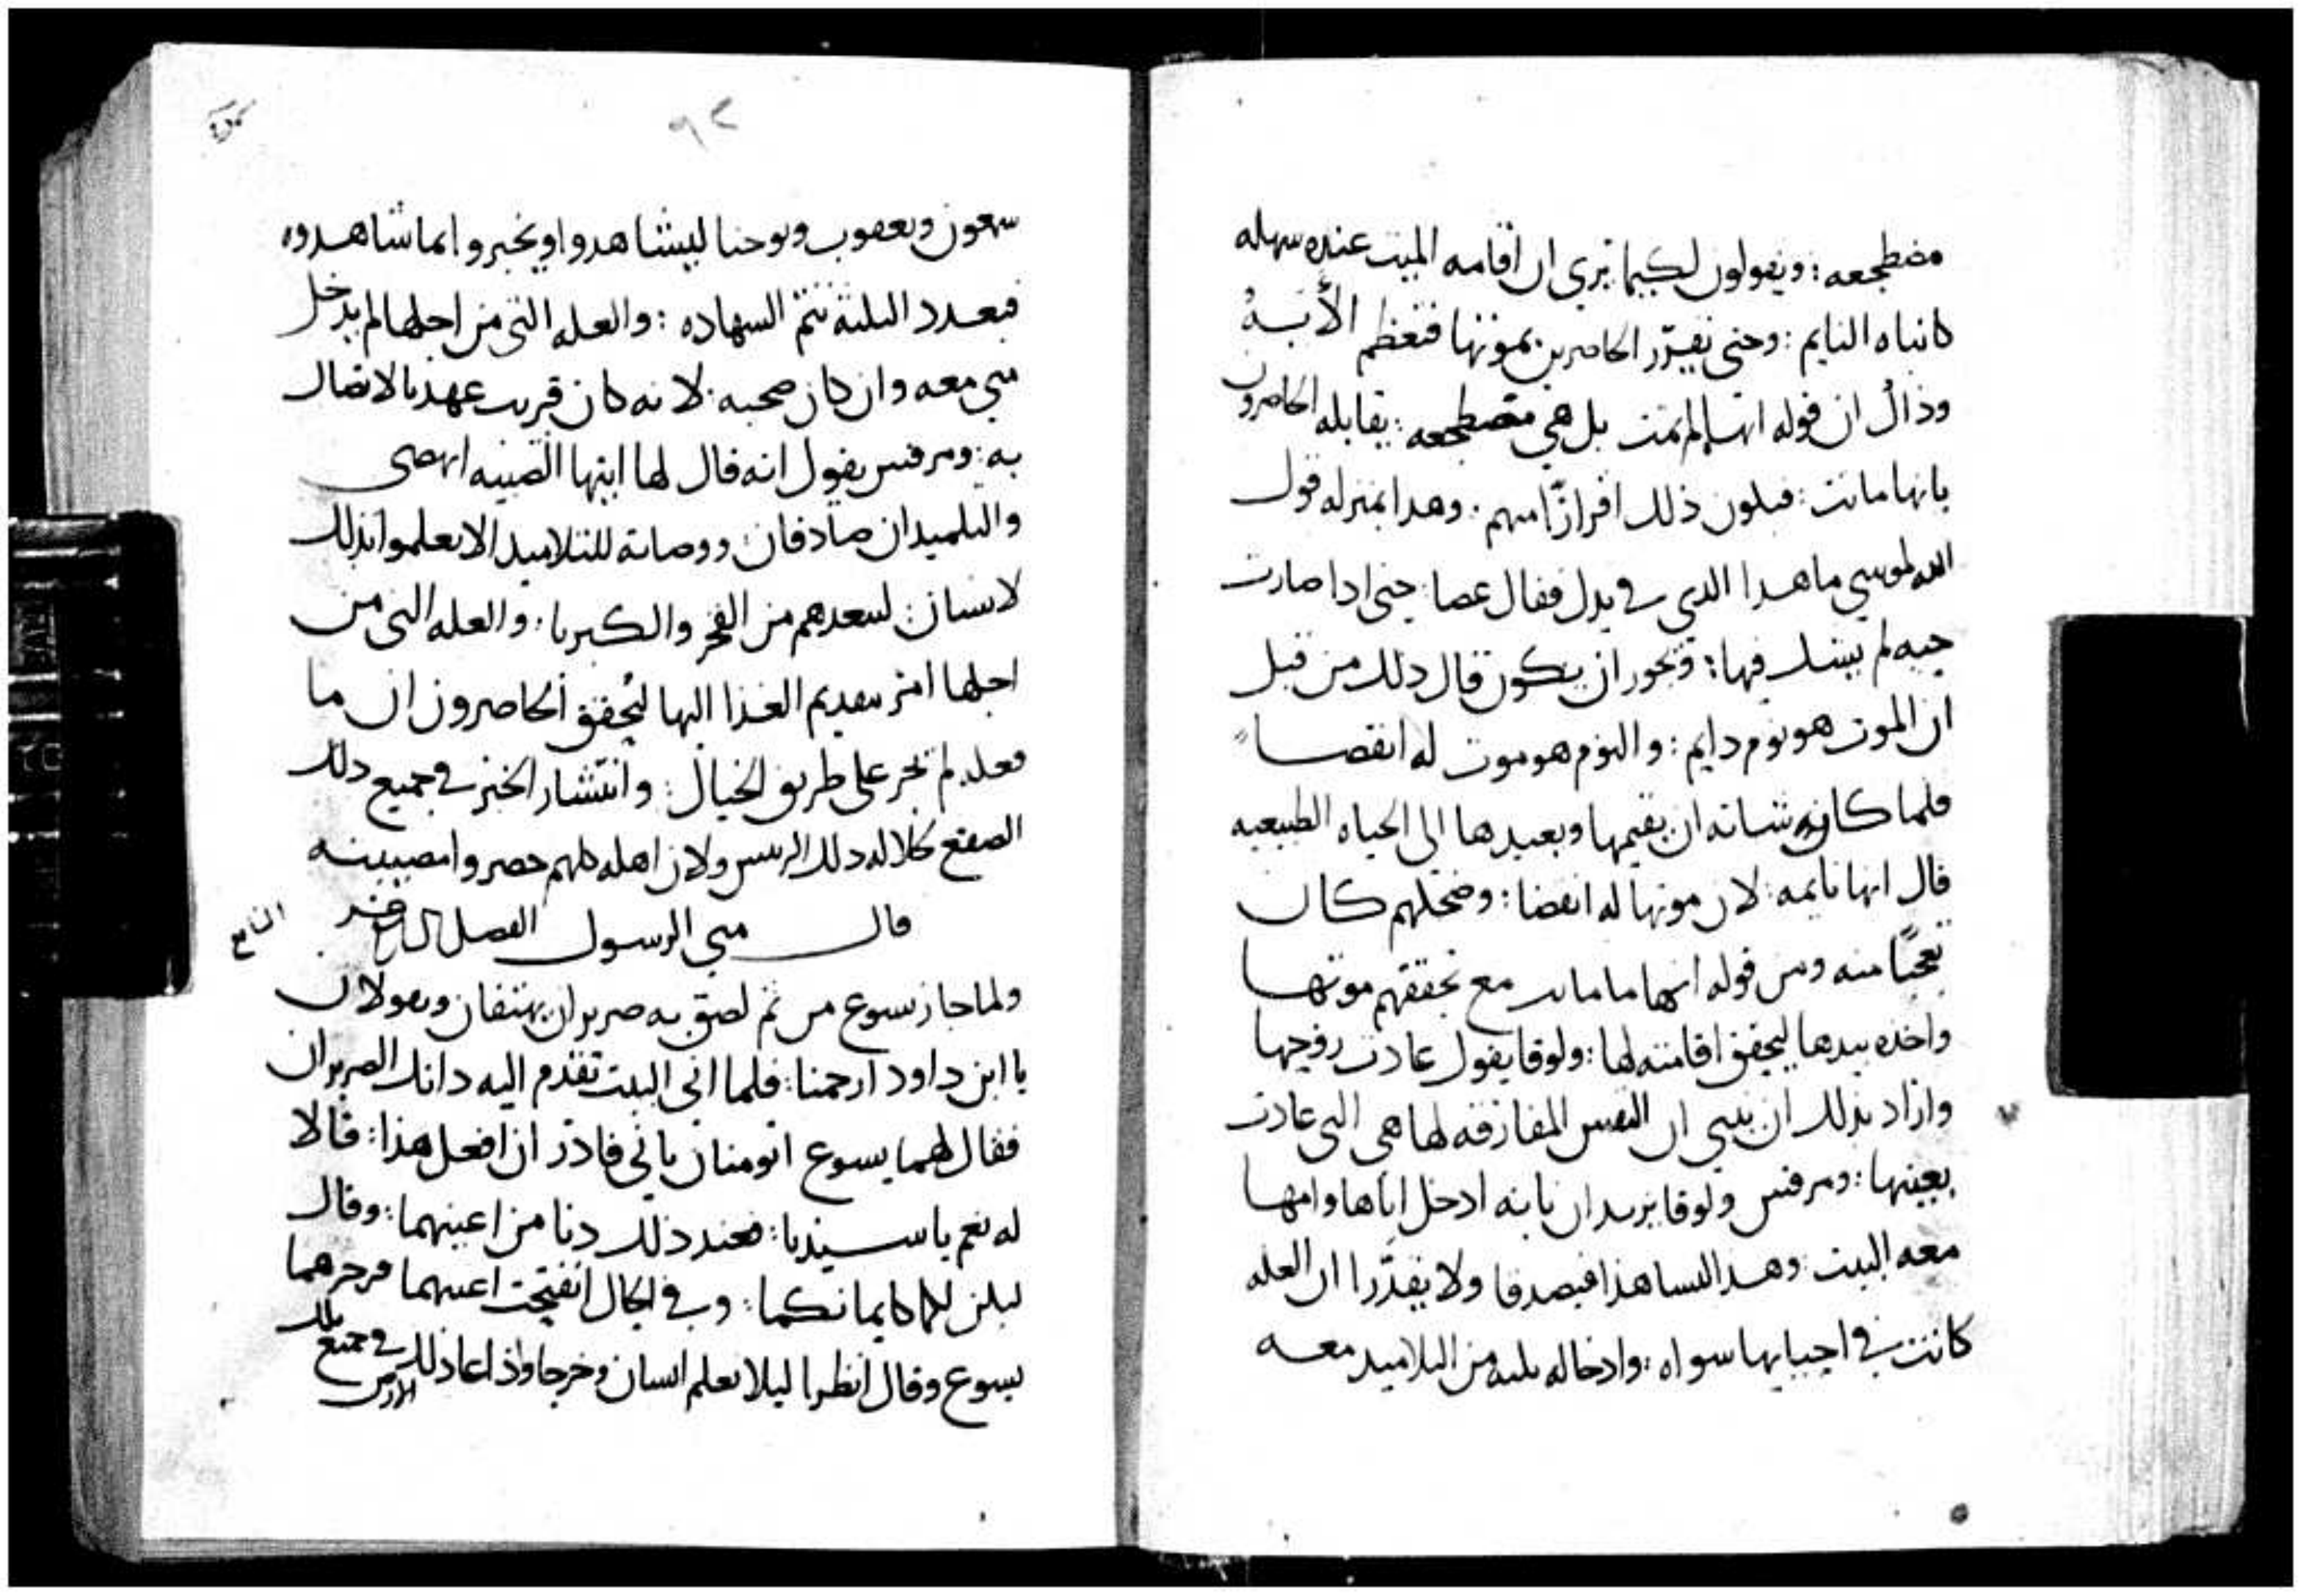 مضطجعه : ويقولون لكيما يري ان اقامه الميت عنده سهله
كانباه النايم : وحتى يقرّر الحاضرين بموتها فتعظم الأيَهُ
وذاك ان قوله انها لم تمت بل هي مضطجعه : يقابله الحاضرون
بانها ماتت : فيكون ذلك اقرارًا منهم . وهدا بمنزله قول
الله لموسي ما هدا الدي في يدك فقال عصا : حتى ادا صارت
حيه لم يشك فيها : ويجوز ان يكون قال دلك من قبل
ان الموت هو نوم دايم : والنوم هو موت له انقضا
فلما كان شانه ان يقيمها ويعيدها الى الحياه الطبيعيه
قال انها نايمه : لان موتها له انقضا : وضحكهم كان
تعجبًا منه ومن قوله انها ما ماتت مع تحققهم موتها
واخذه بيدها ليحقق اقامته لها : ولوقا يقول عادت روحها
واراد بذلك ان يبين ان النفس المفارقه لها هي التي عادت
بعينها : ومرقس ولوقا يزيدان بانه ادخل اباها وامها
معه البيت : وهدا ليشاهدا فيصدقا ولا يقدّرا ان العله
كانت في احيايها سواه : وادخاله ثلثه من التلاميد معه
٩٢
سمعون ويعقوب ويوحنا ليشاهدوا ويخبروا بما شاهدوه
فبعدد الثلثة تتم الشهاده : والعله التي من اجلها لم يدخل
متي معه وان كان صحبه : لانه كان قريب عهد بالاتصال
به : ومرقس يقول انه قال لها ايتها الصبيه انهضي
والتلميدان صادقان : ووصاته للتلاميد الا يعلموا بذلك
لانسان ليبعدهم من الفخر والكبريا : والعله التي من
اجلها امر بتقديم الغذا اليها ليُحقق الحاضرون ان ما
فعله لم يجر على طريق الخيال : وانتشار الخبر في جميع دلك
الصقع لجلاله دلك الريس ولان اهله كلهم حضروا مصيبته
قال متي الرسول الفصل التاسع عشر
التاسع
ولما جاز يسوع من ثم لصق به ضريران يهتفان ويقولان
يا ابن داود ارحمنا : فلما اتى البيت تقدم اليه دانك الضريران
فقال لهما يسوع اتومنان باني قادر ان افعل هذا : قالا
له نعم يا سيدنا : فعند ذلك دنا من اعينهما : وقال
ليكن لكما كايمانكما : وفي الحال انفتحت اعينهما فزجرهما
يسوع وقال انظرا ليلا يعلم انسان وخرجا واذاعا ذلك في جميع تلك
الارض